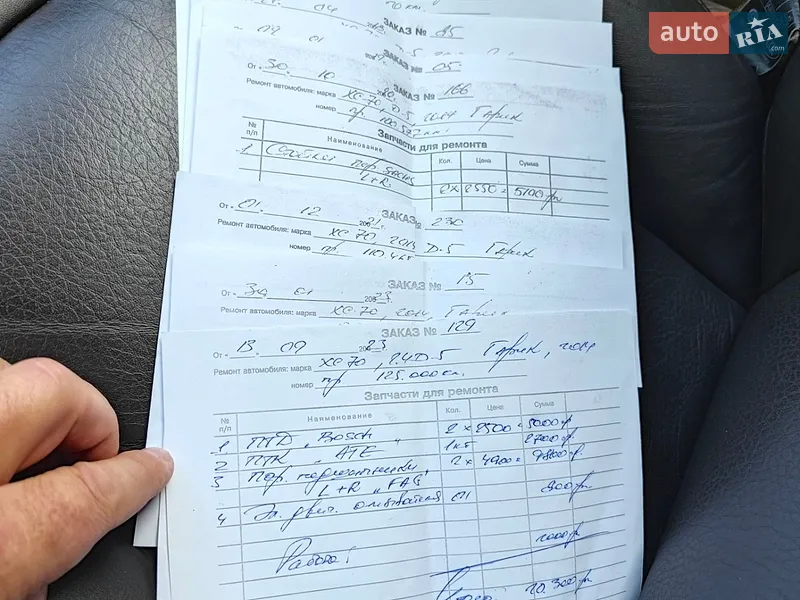 04
ЗАКАЗ № 85
09 01
ЗАКАЗ № 05
auto RIA .com
От « 30. 10 20 ЗАКАЗ № 166
Ремонт автомобиля: марка XC-70, D-5, 2014 Гарик
номер пр. 100.527 км.
Запчасти для ремонта
№ п/п Наименование Кол. Цена Сумма
1 Стойки пер. L+R 2 x 2550 = 5100 гр
От « 01. 12 2021 г. ЗАКАЗ № 230
Ремонт автомобиля: марка XC 70, 2014 D-5 Гарик
номер пр. 110.4
От « 30 01 2023 ЗАКАЗ № 15
Ремонт автомобиля: марка XC-70, 2014, Гарик
От « 13. 09 2023 ЗАКАЗ № 129
Ремонт автомобиля: марка XC 70, 2.4D-5 Гарик, 2014
номер пр 125.000 км.
Запчасти для ремонта
№ п/п Наименование Кол. Цена Сумма
1 ПТД, Bosch 2 x 2500 = 5000 гр
2 ПТК, ATE 1 к-т 2700 гр.
3 Пер. подшипники, L+R „FAG 2 x 4900 = 9800 гр.
4 Эл. двиг. омывателя 01 800 гр.
Работа: 2000 гр
Итого 20.300 гр